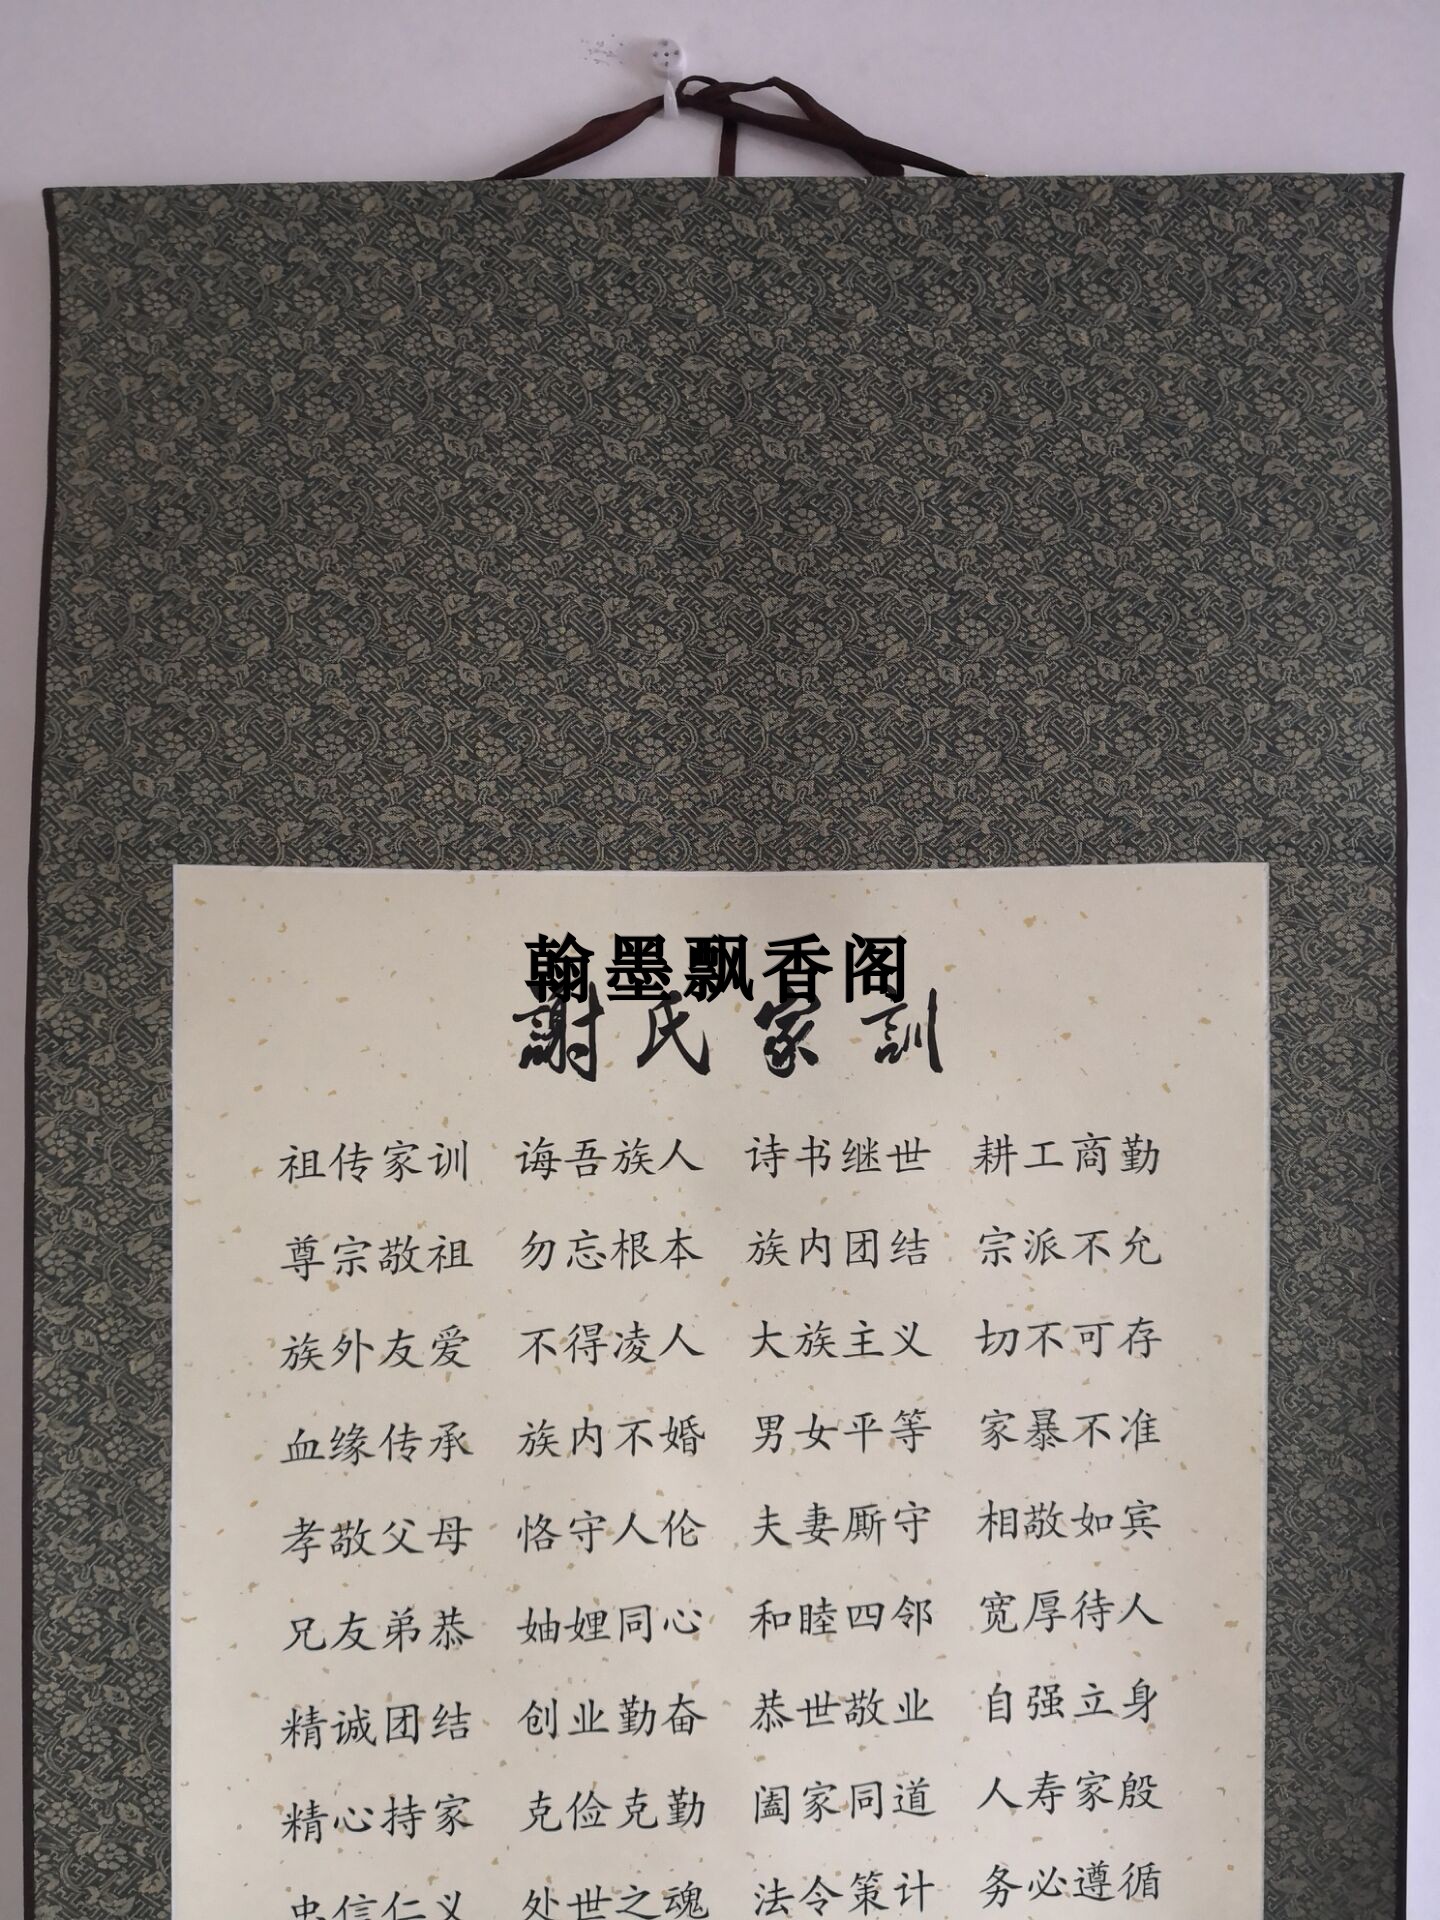 翰墨飘香阁
謝氏家訓
祖传家训 诲吾族人 诗书继世 耕工商勤
尊宗敬祖 勿忘根本 族内团结 宗派不允
族外友爱 不得凌人 大族主义 切不可存
血缘传承 族内不婚 男女平等 家暴不准
孝敬父母 恪守人伦 夫妻厮守 相敬如宾
兄友弟恭 妯娌同心 和睦四邻 宽厚待人
精诚团结 创业勤奋 恭世敬业 自强立身
精心持家 克俭克勤 阖家同道 人寿家殷
忠信仁义 处世之魂 法令策计 务必遵循